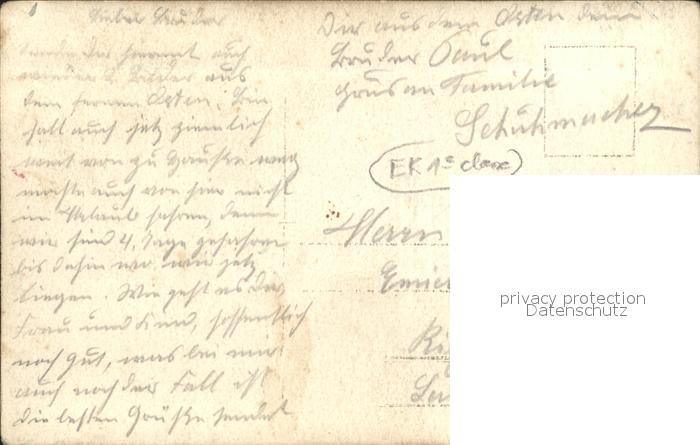 Lieber Bruder
sende Dir hiermit auch
wieder 2 Bilder aus
dem fernen Osten, bin
halt auch jetz ziemlich
weit von zu Hauße weg
möchte auch von hier nicht
im Urlaub fahren, denn
wir sind 4 Tage gefahren
bis dahin wo wir jetz
liegen. Wie geht es der
Frau und Kind, hoffentlich
noch gut, was bei mir
auch noch der Fall ist
die besten Grüße sendet
Dir aus dem Osten dein
Bruder Paul
Grus an Familie
Schuhmacher
EK 1e classe
Herrn
privacy protection
Datenschutz